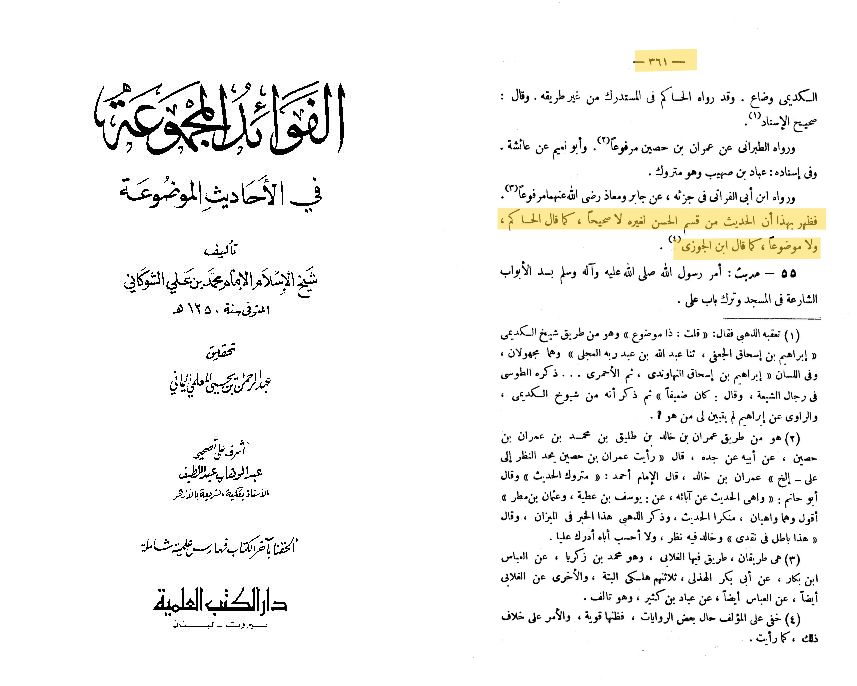 الفَوَائدُ المجْمُوعَة
في الأحَاديثِ الموْضُوعَة
تأليف
شيخ الإسْلام الإمَام محمّد بن عَلي الشوكاني
المتوفى سنة ١٢٥٠ هـ
تحقيق
عبد الرحمن بن يحيى المعلمي اليماني
أشرف على تصحيحه
عبد الوهاب عبد اللطيف
الأستاذ بكلية الشريعة بالأزهر
ألحقنا بآخر الكتاب فهارس علمية شاملة
دار الكتب العلمية
بيروت - لبنان
— ٣٦١ —
الكديمى وضاع . وقد رواه الحاكم فى المستدرك من غير طريقه . وقال :
صحيح الإسناد(١).
ورواه الطبرانى عن عمران بن حصين مرفوعاً(٢). وأبو نعيم عن عائشة .
وفى إسناده : عباد بن صهيب وهو متروك .
ورواه ابن أبى الفراتى فى جزئه ، عن جابر ومعاذ رضى الله عنهما مرفوعاً(٣).
فظهر بهذا أن الحديث من قسم الحسن لغيره لا صحيحاً ، كما قال الحاكم ،
ولا موضوعاً ، كما قال ابن الجوزى(٤) .
٥٥ — حديث : أمر رسول الله صلى الله عليه وآله وسلم بسد الأبواب
الشارعة فى المسجد وترك باب على .
(١) تعقبه الذهبى فقال : « قلت : ذا موضوع » وهو من طريق شيخ الكديمى
« إبراهيم بن إسحاق الجعفى ، ثنا عبد الله بن عبد ربه العجلى » وهما مجهولان ،
وفى اللسان « إبراهيم بن إسحاق النهاوندى ، ثم الأحمرى . . . ذكره الطوسى
فى رجال الشيعة ، وقال : كان ضعيفاً » ثم ذكر أنه من شيوخ الكديمى ،
والراوى عن إبراهيم لم يتبين لى من هو ؟ .
(٢) هو من طريق عمران بن خالد بن طليق بن محمد بن عمران بن
حصين ، عن أبيه عن جده ، قال « رأيت عمران بن حصين يحد النظر إلى
على ــ إلخ » عمران بن خالد ، قال الإمام أحمد : « متروك الحديث » وقال
أبو حاتم : « واهى الحديث عن آبائه ، عن : يوسف بن عطية ، وعثمان بن مطر »
أقول وهما واهيان ، منكرا الحديث ، وذكر الذهبى هذا الخبر فى الميزان ، وقال
« هذا باطل فى نقدى » وخالد فيه نظر ، ولا أحسب أباه أدرك عليا .
(٣) هى طريقان ، طريق فيها الغلابى ، وهو محمد بن زكريا ، عن العباس
ابن بكار ، عن أبى بكر الهذلى ، ثلاثتهم هلكى البتة ، والأخرى عن الغلابى
أيضاً ، عن العباس أيضاً ، عن عباد بن كثير ، وهو تالف .
(٤) خفى على المؤلف حال بعض الروايات ، فظنها قوية ، والأمر على خلاف
ذلك ، كما رأيت .